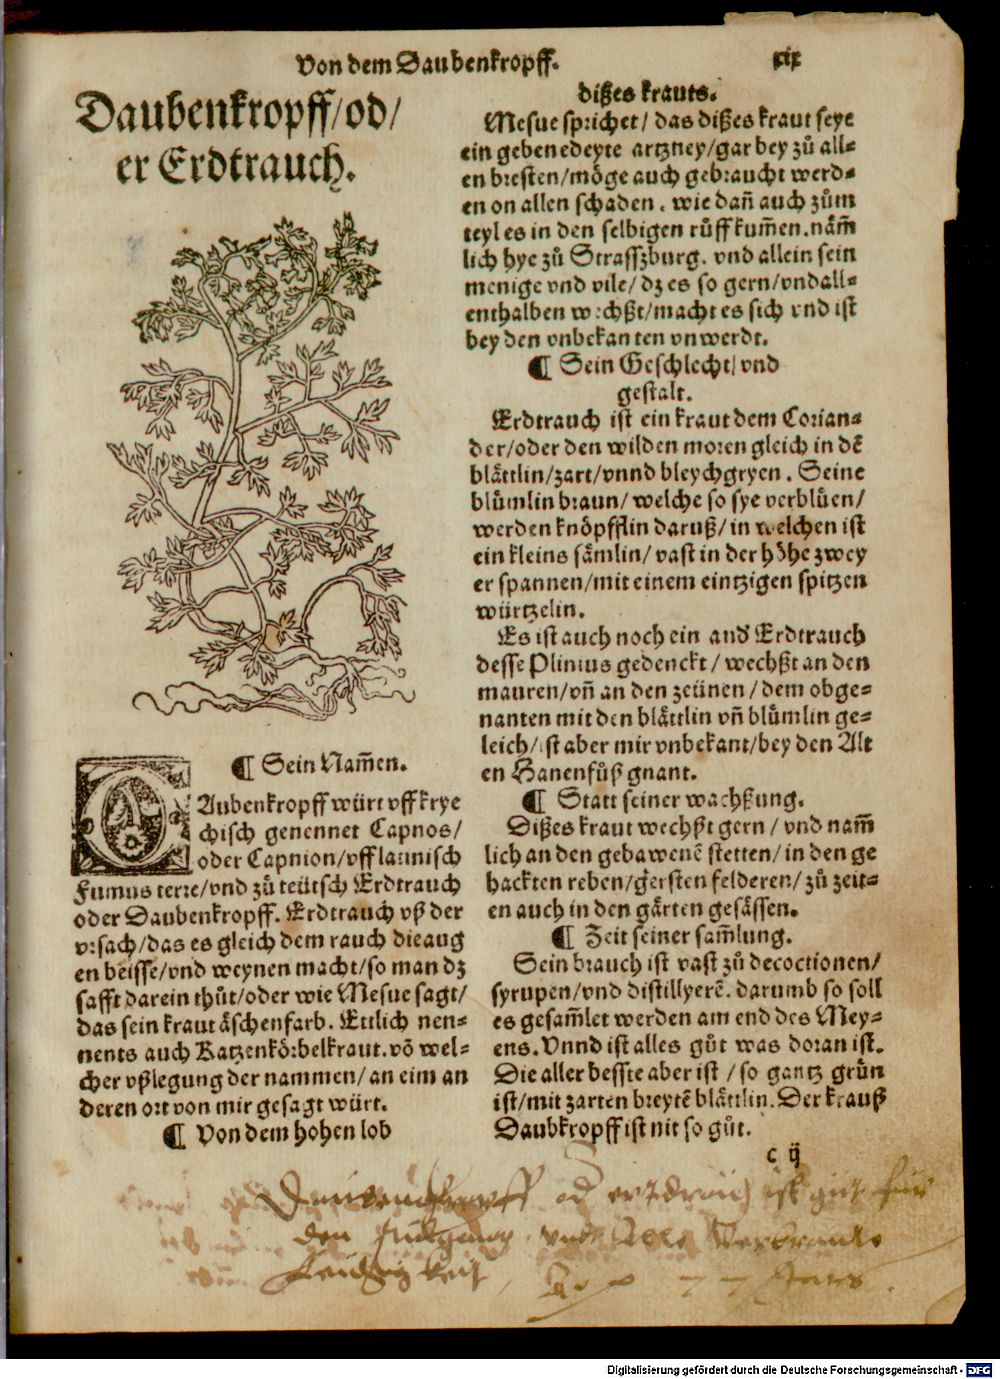 Von dem Daubenkropff.
xix
Daubenkropff/od/
er Erdtrauch.
¶ Sein Nam̄en.
DAubenkropff würt vff krye
chisch genennet Capnos/
oder Capnion/vff latinisch
Fumus terre/vnd zů teütsch Erdtrauch
oder Daubenkropff. Erdtrauch vß der
vrsach/das es gleich dem rauch die aug
en beisse/vnd weynen macht/so man dz
safft darein thůt/oder wie Mesue sagt/
das sein kraut äschenfarb. Ettlich nen=
nents auch Katzenkörbelkraut. vō wel=
cher vßlegung der nammen/an eim an
deren ort von mir gesagt würt.
¶ Von dem hohen lob
dißes krauts.
Mesue sprichet/ das dißes kraut seye
ein gebenedeyte artzney/gar bey zů all=
en bresten/möge auch gebraucht werd=
en on allen schaden. wie dañ auch zům
teyl es in den selbigen růff kum̄en. näm̄
lich hye zů Strasszburg. vnd allein sein
menige vnd vile/ dz es so gern/vnd all=
enthalben wechßt/macht es sich vnd ist
bey den vnbekanten vnwerdt.
¶ Sein Geschlecht/ vnd
gestalt.
Erdtrauch ist ein kraut dem Corian=
der/oder den wilden moren gleich in dē
blättlin/zart/vnnd bleychgryen. Seine
blůmlin braun/ welche so sye verblüen/
werden knöpfflin daruß/ in welchen ist
ein kleins sämlin/ vast in der höhe zwey
er spannen/mit einem eintzigen spitzen
würtzelin.
Es ist auch noch ein and' Erdtrauch
desse Plinius gedenckt/ wechßt an den
mauren/vñ an den zeünen/dem obge=
nanten mit den blättlin vñ blümlin ge=
leich/ist aber mir vnbekant/bey den Alt
en Hanenfůß gnant.
¶ Statt seiner wachßung.
Dißes kraut wechßt gern/ vnd nam̄
lich an den gebawenē stetten/ in den ge
hackten reben/gersten felderen/ zů zeit=
en auch in den gärten gesässen.
¶ Zeit seiner sam̄lung.
Sein brauch ist vast zů decoctionen/
syrupen/vnd distillyerē. darumb so soll
es gesam̄let werden am end des Mey=
ens. Vnnd ist alles gůt was doran ist.
Die aller besste aber ist/so gantz grün
ist/mit zarten breytē blättlin. Der krauß
Daubkropff ist nit so gůt.
c ij
od ertdrauch ist gut für
den vnd Alle
Digitalisierung gefördert durch die Deutsche Forschungsgemeinschaft - DFG